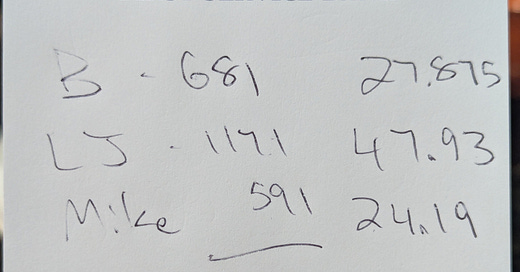 B - 681 27.875
LJ - 1171 47.93
Mike 591 24.19